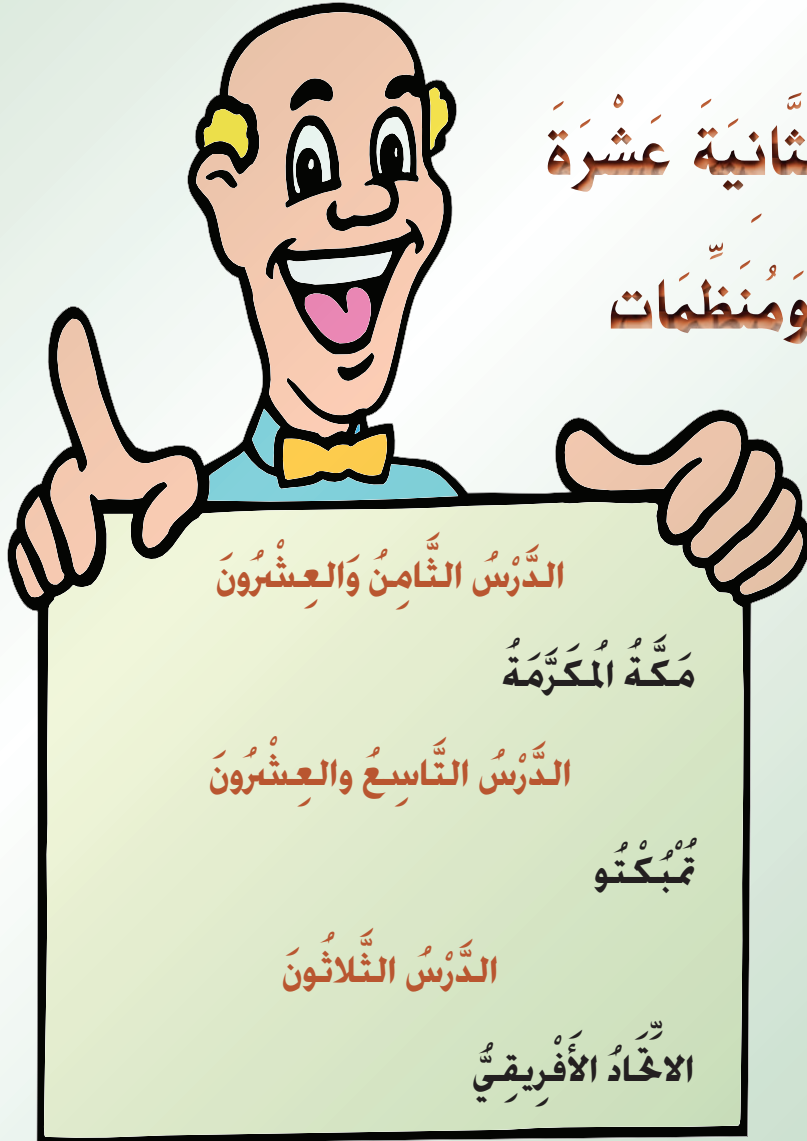 عَشْرَةَ
وَمُنَظِّمَات
الدَّرْسُ الثَّامِنُ وَالعِشْرُونَ
مَكَّةُ الْمُكَرَّمَةُ
الدَّرْسُ التَّاسِعُ والعِشْرُونَ
تُمْبُكْتُو
الدَّرْسُ الثَّلاثُونَ
الاتِّحَادُ الأَفْرِيقِيُّ